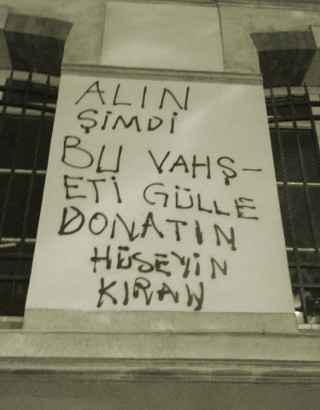 ALIN
ŞİMDİ
BU VAHŞ-
ETİ GÜLLE
DONATIN
HÜSEYİN
KIRAN